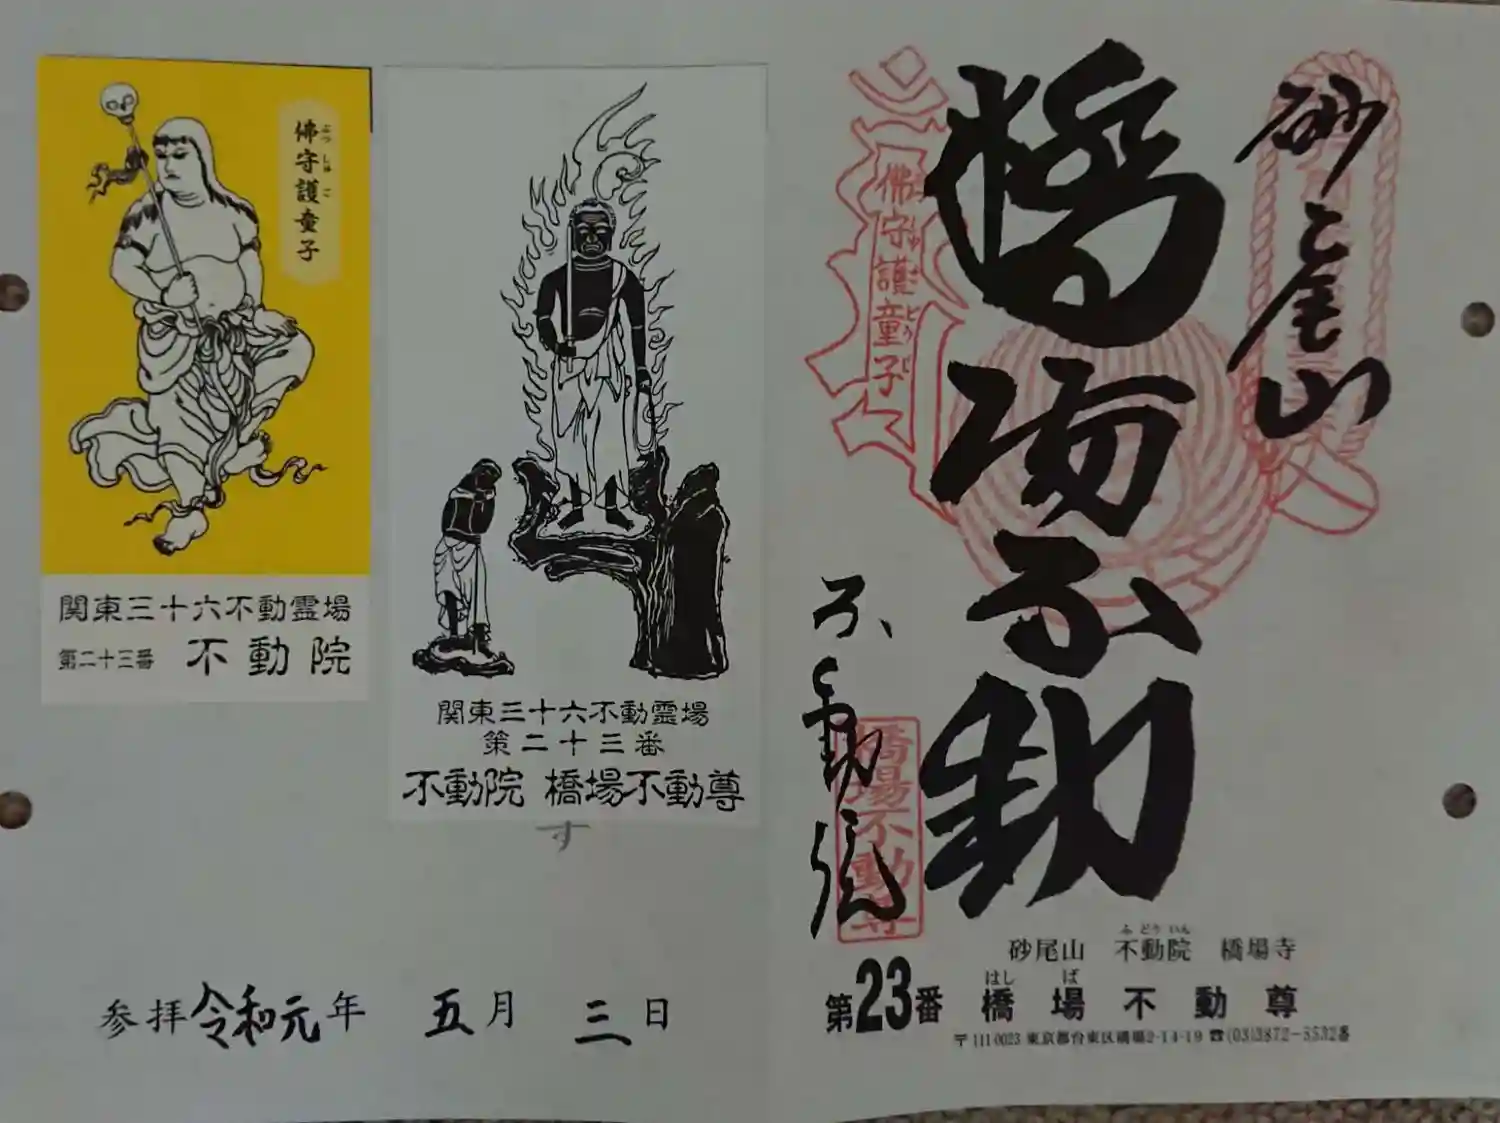 佛守護童子
ぶっしゅご
関東三十六不動霊場
第二十三番 不動院
関東三十六不動霊場
第二十三番
不動院 橋場不動尊
す
参拝令和元年 五月 三日
砂尾山
橋場不動
不動院
佛守護童子
橋場不動尊
砂尾山 不動院 橋場寺
ふどういん
第23番 橋場不動尊
はしば
〒111-0023 東京都台東区橋場2-14-19 ☎(03)3872-5532番